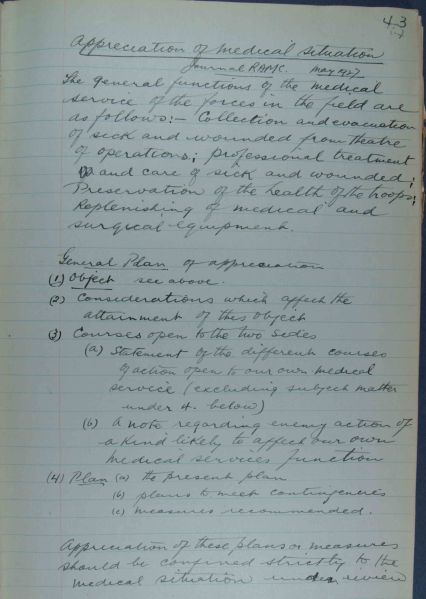 43
Appreciation of medical situation
Journal RAMC. May 1927
The general functions of the medical
service of the forces in the field are
as follows:- Collection and evacuation
of sick and wounded from theatre
of operations; professional treatment
and care of sick and wounded;
Preservation of the health of the troops;
Replenishing of medical and
surgical equipment.
General Plan of appreciation
(1) Object see above.
(2) Considerations which affect the
attainment of this object
(3) Courses open to the two Sides
(a) Statement of the different courses
of action open to our own medical
service (excluding subject matter
under 4. below)
(b) A note regarding enemy action of
a kind likely to affect our own
medical services function
(4) Plan (a) the present plan
(b) plans to meet contingencies
(c) measures recommended.
Appreciation of these plans or measures
should be confined strictly to the
medical situation under review